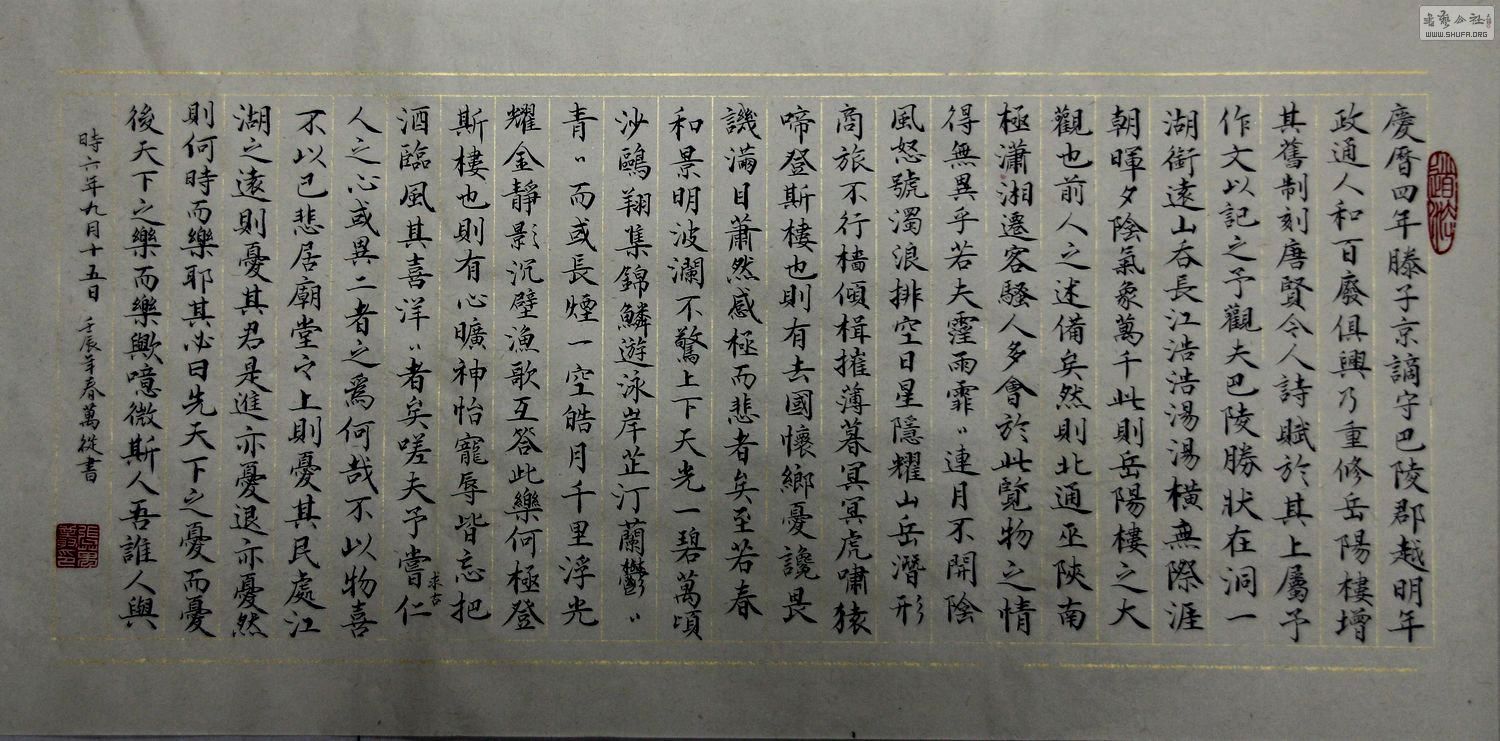 慶曆四年滕子京謫守巴陵郡越明年
政通人和百廢俱興乃重修岳陽樓增
其舊制刻唐賢令人詩賦於其上屬予
作文以記之予觀夫巴陵勝狀在洞一
湖銜遠山吞長江浩浩湯湯橫無際涯
朝暉夕陰氣象萬千此則岳陽樓之大
觀也前人之述備矣然則北通巫陝南
極瀟湘遷客騷人多會於此覽物之情
得無異乎若夫霪雨霏〻連月不開陰
風怒號濁浪排空日星隱耀山岳潛形
商旅不行檣傾楫摧薄暮冥冥虎嘯猿
啼登斯樓也則有去國懷鄉憂讒畏
譏滿目蕭然感極而悲者矣至若春
和景明波瀾不驚上下天光一碧萬頃
沙鷗翔集錦鱗遊泳岸芷汀蘭鬱〻
青〻而或長煙一空皓月千里浮光
耀金靜影沉璧漁歌互答此樂何極登
斯樓也則有心曠神怡寵辱皆忘把
酒臨風其喜洋〻者矣嗟夫予嘗求古仁
人之心或異二者之為何哉不以物喜
不以己悲居廟堂之上則憂其民處江
湖之遠則憂其君是進亦憂退亦憂然
則何時而樂耶其必曰先天下之憂而憂
後天下之樂而樂歟噫微斯人吾誰人與
時六年九月十五日 壬辰年春萬從書
書藝公社
WWW.SHUFA.ORG